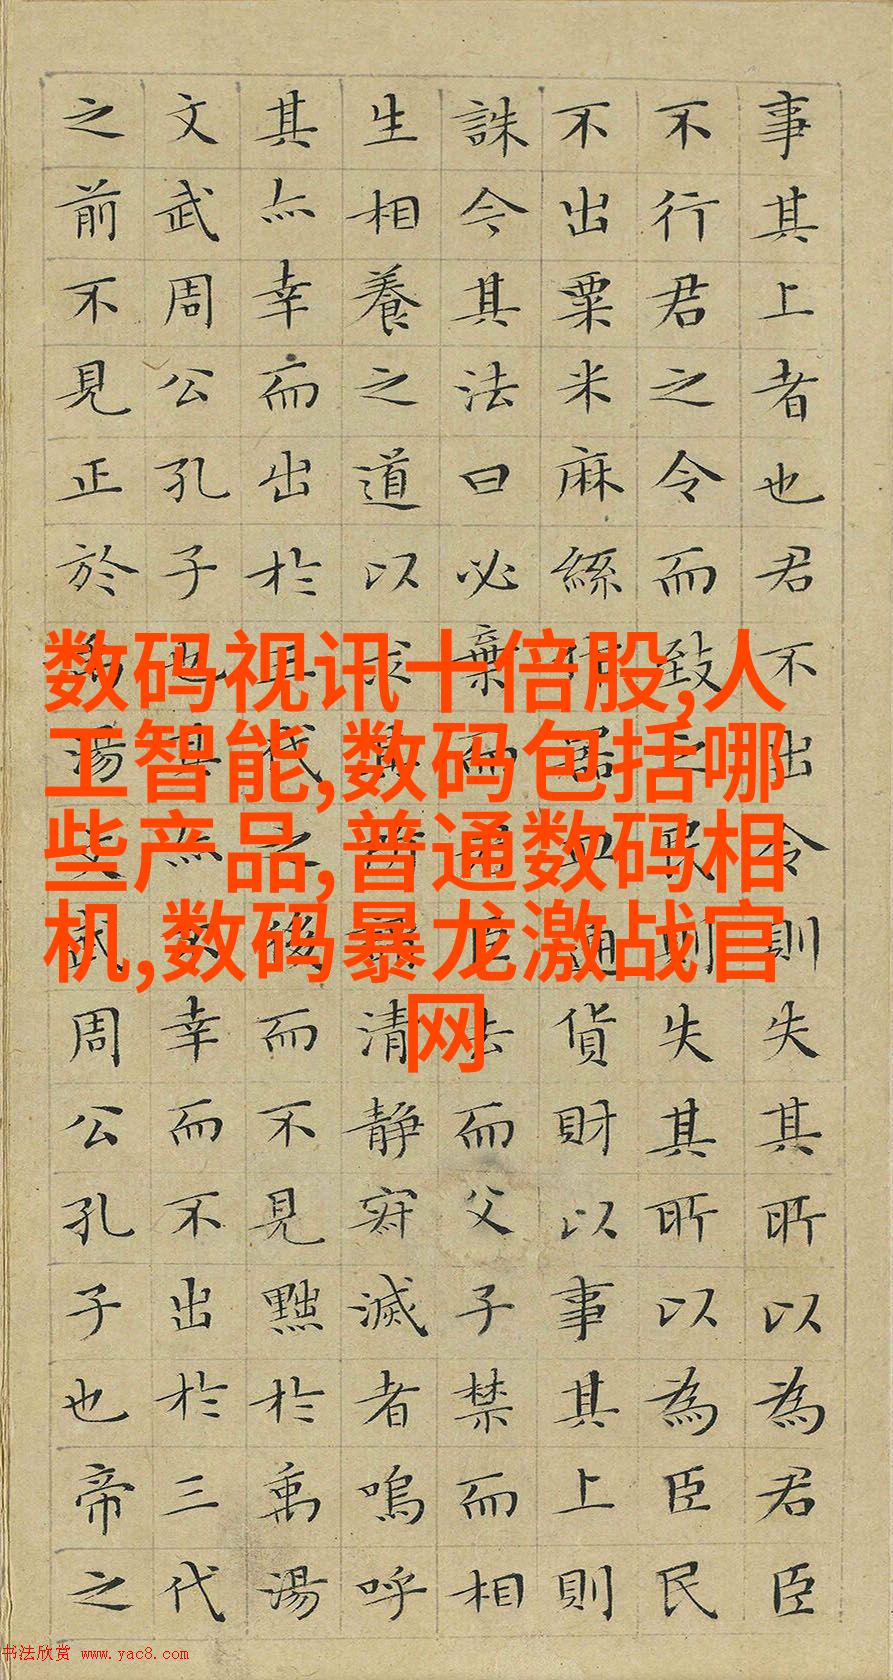 事其上者也君不出令則失其所以為君臣
不行君之令而致之民則失其所以為臣民
不出粟米麻絲作皿通貨財以事其上則
誅今其法曰必棄而君臣去而父子禁而相
生相養之道以求其所清静寂滅者嗚呼
其亦幸而出於三代之後而不見黜於禹湯
文武周公孔子也其亦不幸而不出於三代
之前不見正於禹湯文武周公孔子也帝之
数码视讯十倍股,人
工智能,数码包括哪
些产品,普通数码相
机,数码暴龙激战官
网
书法欣赏 www.yac8.com